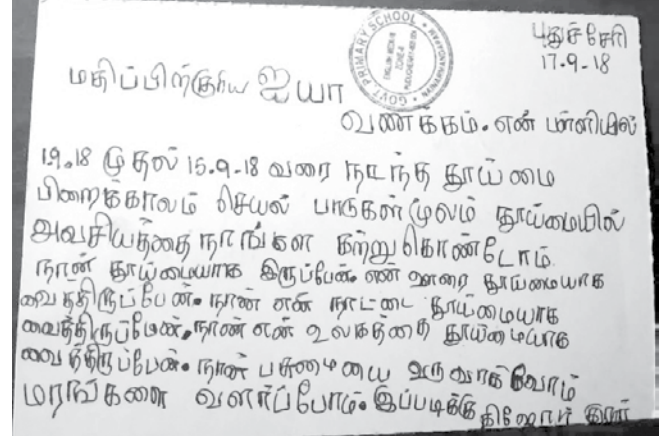 புதுச்சேரி
17-9-18
GOVT. PRIMARY SCHOOL
மதிப்பிற்குரிய ஐயா
வணக்கம். என் பள்ளியில்
1.9.18 முதல் 15.9-18 வரை நடந்த தூய்மை
பிறைக்காலம் செயல் பாடுகள் மூலம் தூய்மையில்
அவசியத்தை நாங்கள கற்று கொண்டோம்.
நான் தூய்மையாக இருப்பேன். என் ஊரை தூய்மையாக
வைத்திருப்பேன். நான் என் நாட்டை தூய்மையாக
வைத்திருப்பேன். நான் என் உலகத்தை தூய்மையாக
வைத்திருப்பேன். நான் பசுமையை உருவாக்குவோம்
மரங்களை வளர்ப்போம். இப்படிக்கு